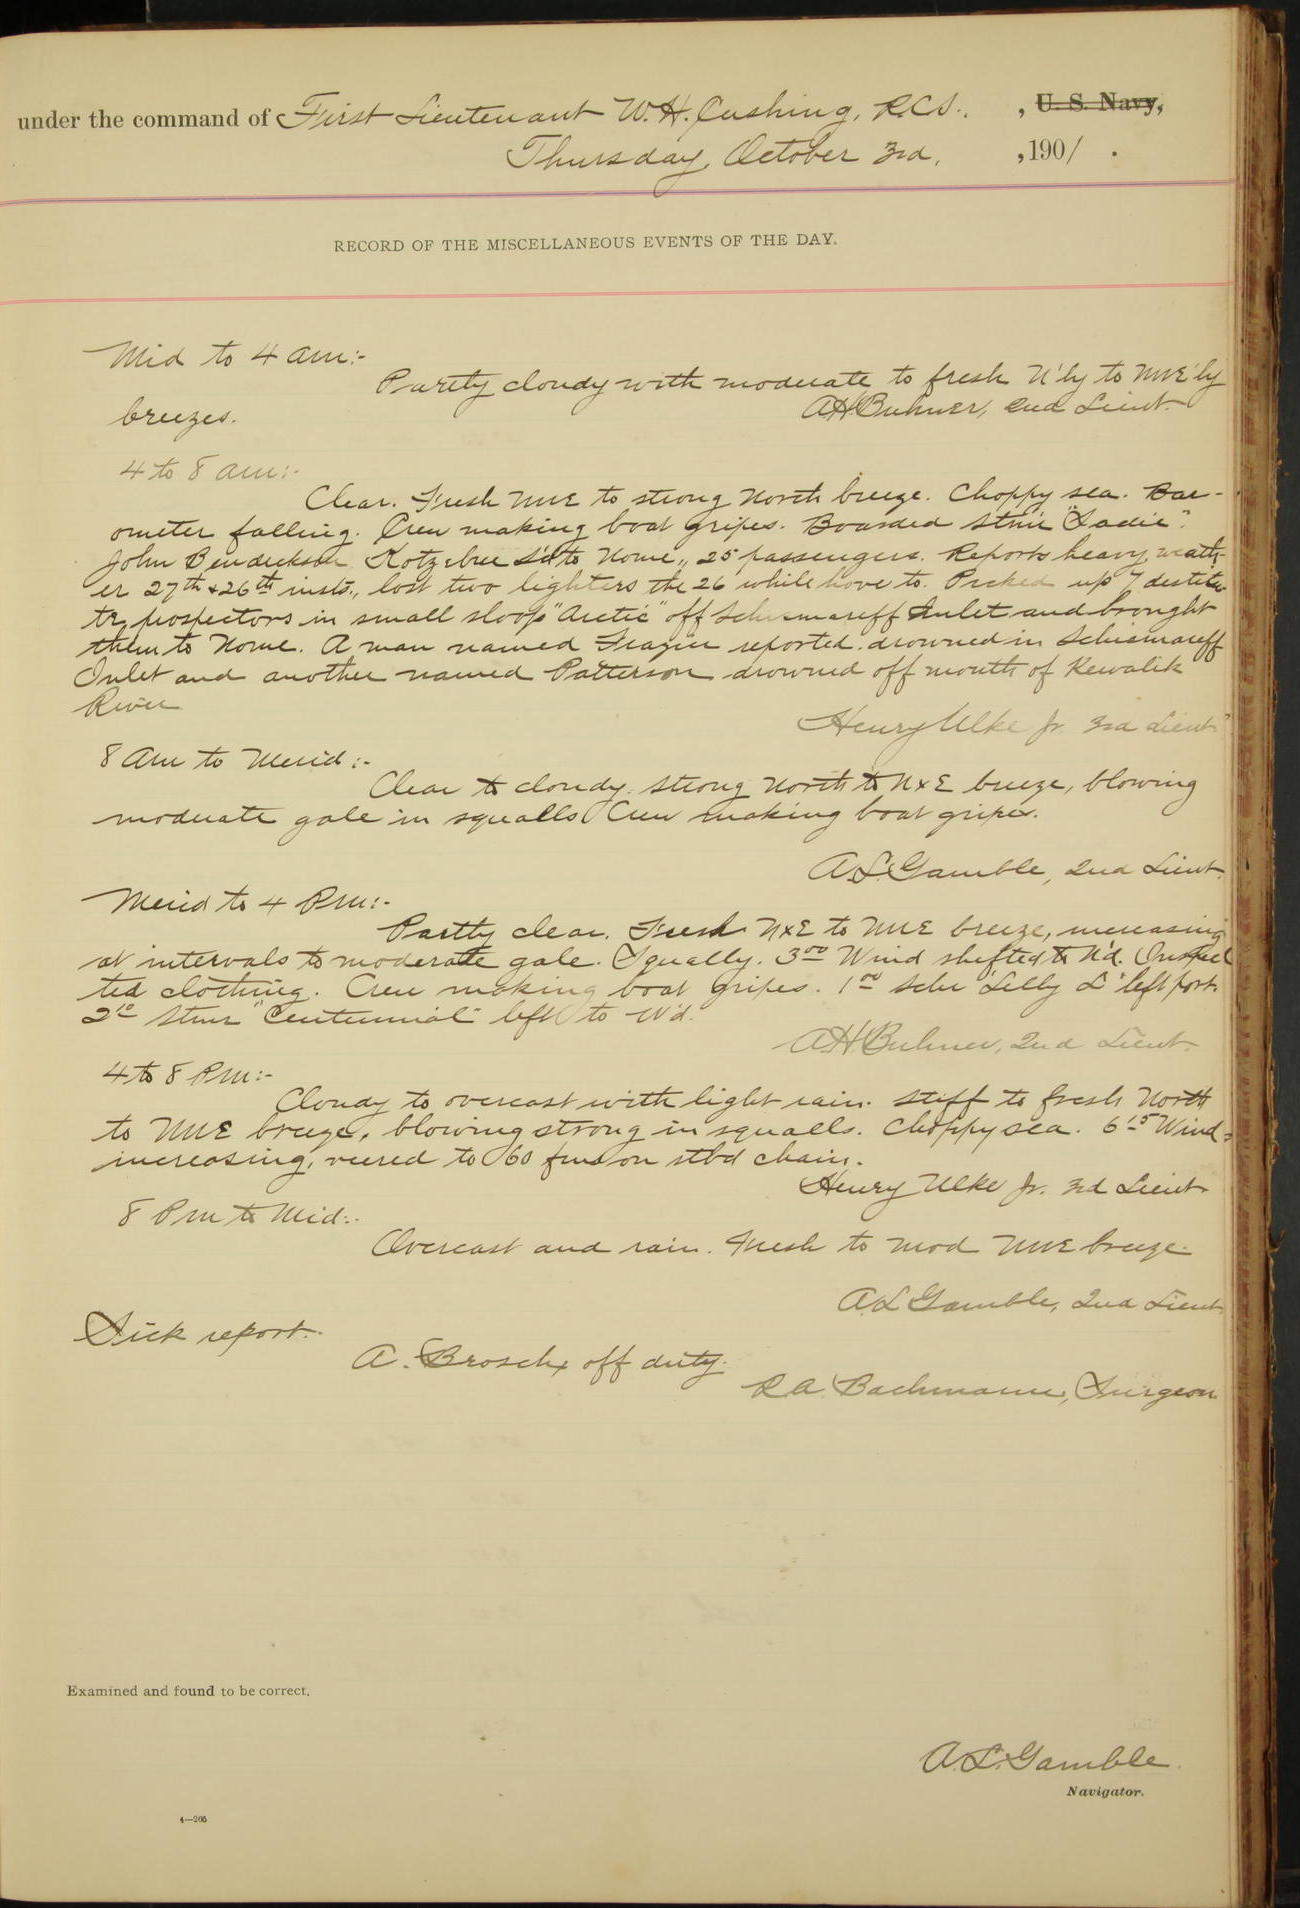 under the command of First Lieutenant W. H. Cushing, R.C.S., , U. S. Navy,
Thursday, October 3rd, , 1901 .
RECORD OF THE MISCELLANEOUS EVENTS OF THE DAY.
Mid to 4 am:-
Partly cloudy with moderate to fresh N'ly to NNE'ly
breezes. A H Buhner, 2nd Lieut.
4 to 8 am:-
Clear. Fresh NNE to strong North breeze. Choppy sea. Bar-
ometer falling. Crew making boat gripes. Boarded Stmr "Sadie".
John Bendickson Kotzebue S'd to Nome, 25 passengers. Reports heavy weath-
er 27th & 26th insts., lost two lighters the 26 while hove to. Picked up 7 destitu-
te prospectors in small sloop "Arctic" off Schismareff Inlet and brought
them to Nome. A man named Frazier reported drowned in Schismareff
Inlet and another named Patterson drowned off mouth of Kewalik
River
Henry Ulke Jr. 3rd Lieut
8 am to Merid:-
Clear to cloudy. Strong North to NxE breeze, blowing
moderate gale in squalls Crew making boat gripes.
A. L. Gamble, 2nd Lieut.
Merid to 4 Pm:-
Partly clear. Fresh NxE to NNE breeze, increasing
at intervals to moderate gale. Squally. 3 00 Wind shifted to N'd. Inspec
ted clothing. Crew making boat gripes. 1 00 Schr "Lilly L" left port.
2 10 Stmr "Centennial" left to W'd.
A H Buhner, 2nd Lieut.
4 to 8 Pm:-
Cloudy to overcast with light rain. Stiff to fresh North
to NNE breeze, blowing strong in squalls. Choppy sea. 6 15 Wind
increasing, veered to 60 fms on stbd chain.
Henry Ulke Jr. 3rd Lieut
8 Pm to Mid:-
Overcast and rain. Fresh to mod NNE breeze.
A L Gamble, 2nd Lieut
Sick report.
A. Brosch, off duty.
R A Bachmann, Surgeon
Examined and found to be correct.
A. L. Gamble.
Navigator.
4—265